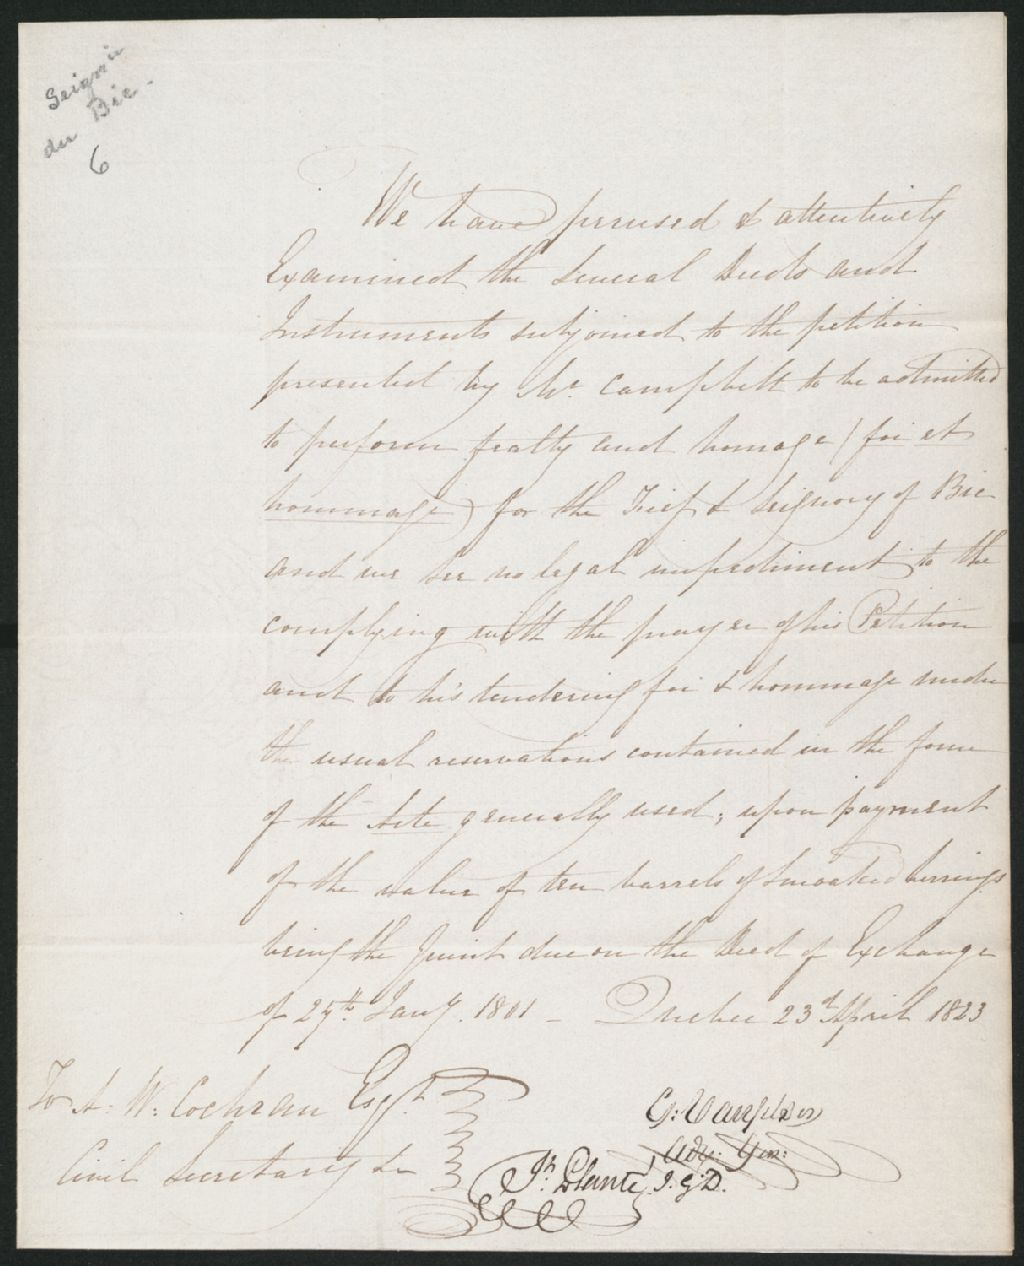 Seign ie
du Bic.
6
We have perused & attentively
Examined the several Deeds and
Instruments subjoined to the petition
presented by Mr. Campbell to be admitted
to perform fealty and homage (foi et
hommage) for the Fief & Seigniory of Bic
and we see no legal impediment to the
complying with the prayer of his Petition
and to his tendering foi & hommage under
the usual reservations contained in the form
of the Acte generally used; upon payment
of the value of ten barrels of smoaked herrings
being the Quint due on the Deed of Exchange
of 25th. Jany. 1801 - Quebec 23d April 1823
To A: W: Cochran Esqr.
Civil Secretary &c
G: Vanfelson
Adv: Gen:
Jh. Planté, I.G.D.